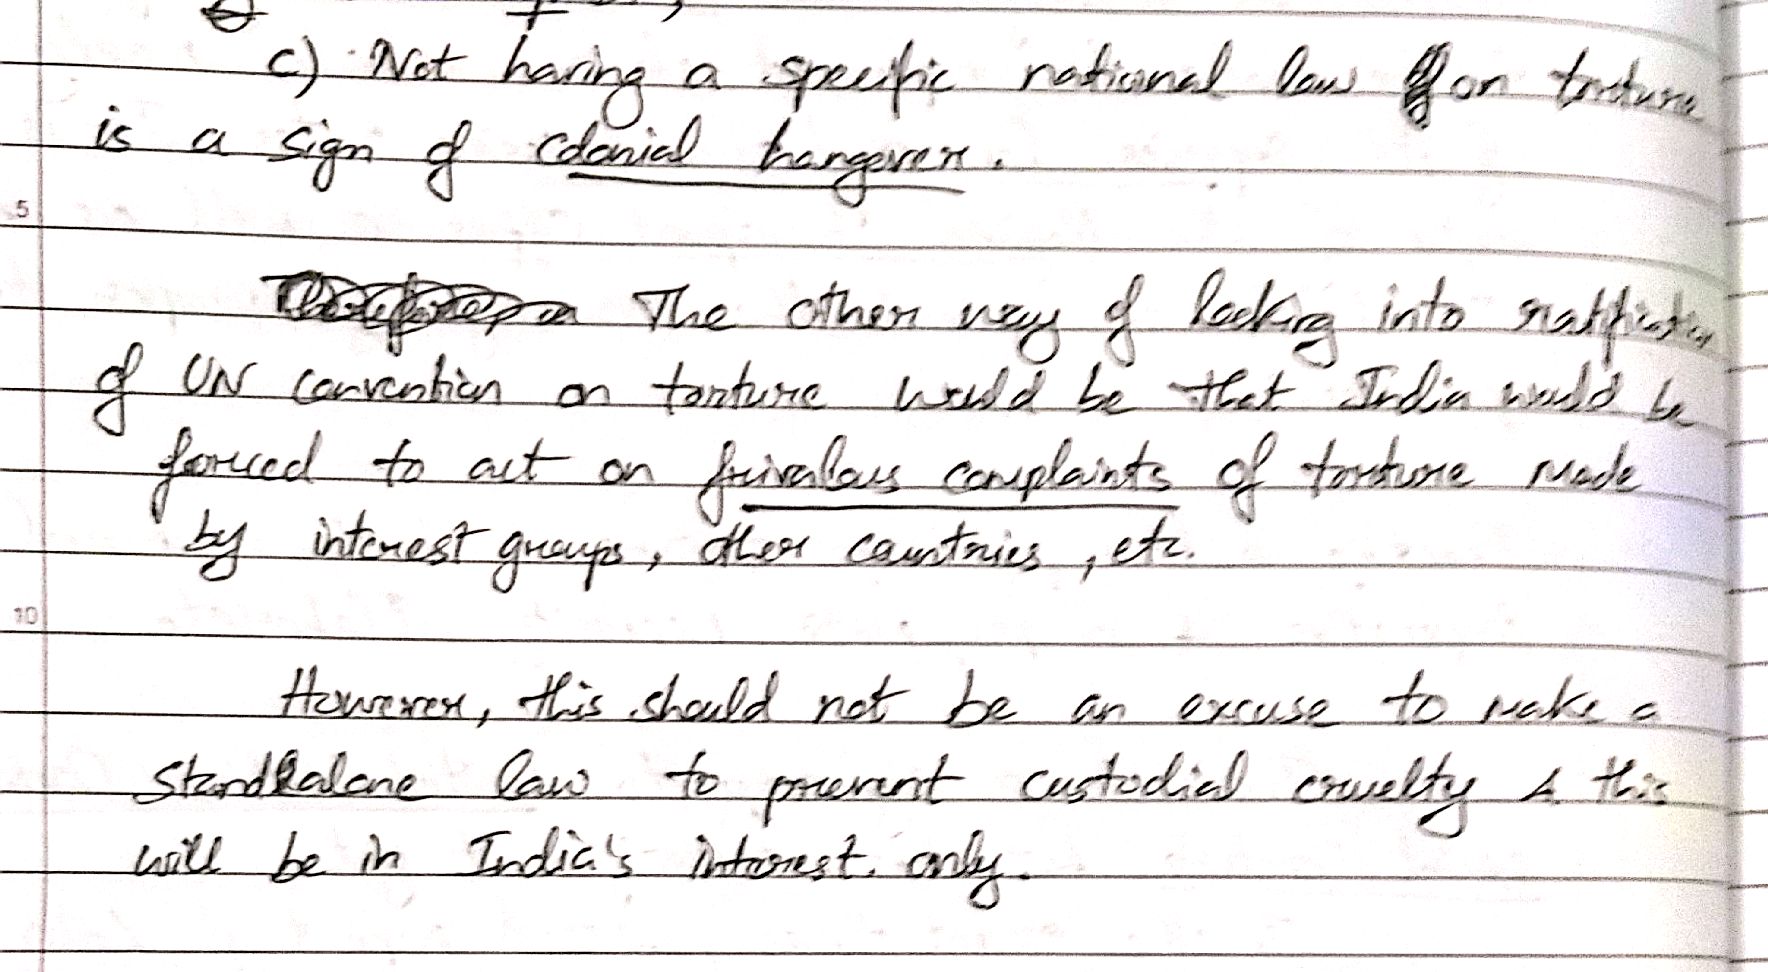 c) Not having a specific national law on torture
is a sign of colonial hangover.
5
The other way of looking into ratification
of UN convention on torture would be that India would be
forced to act on frivalous complaints of torture made
by interest groups, other countries, etc.
10
However, this should not be an excuse to make a
standalone law to prevent custodial cruelty & this
will be in India's interest. only.